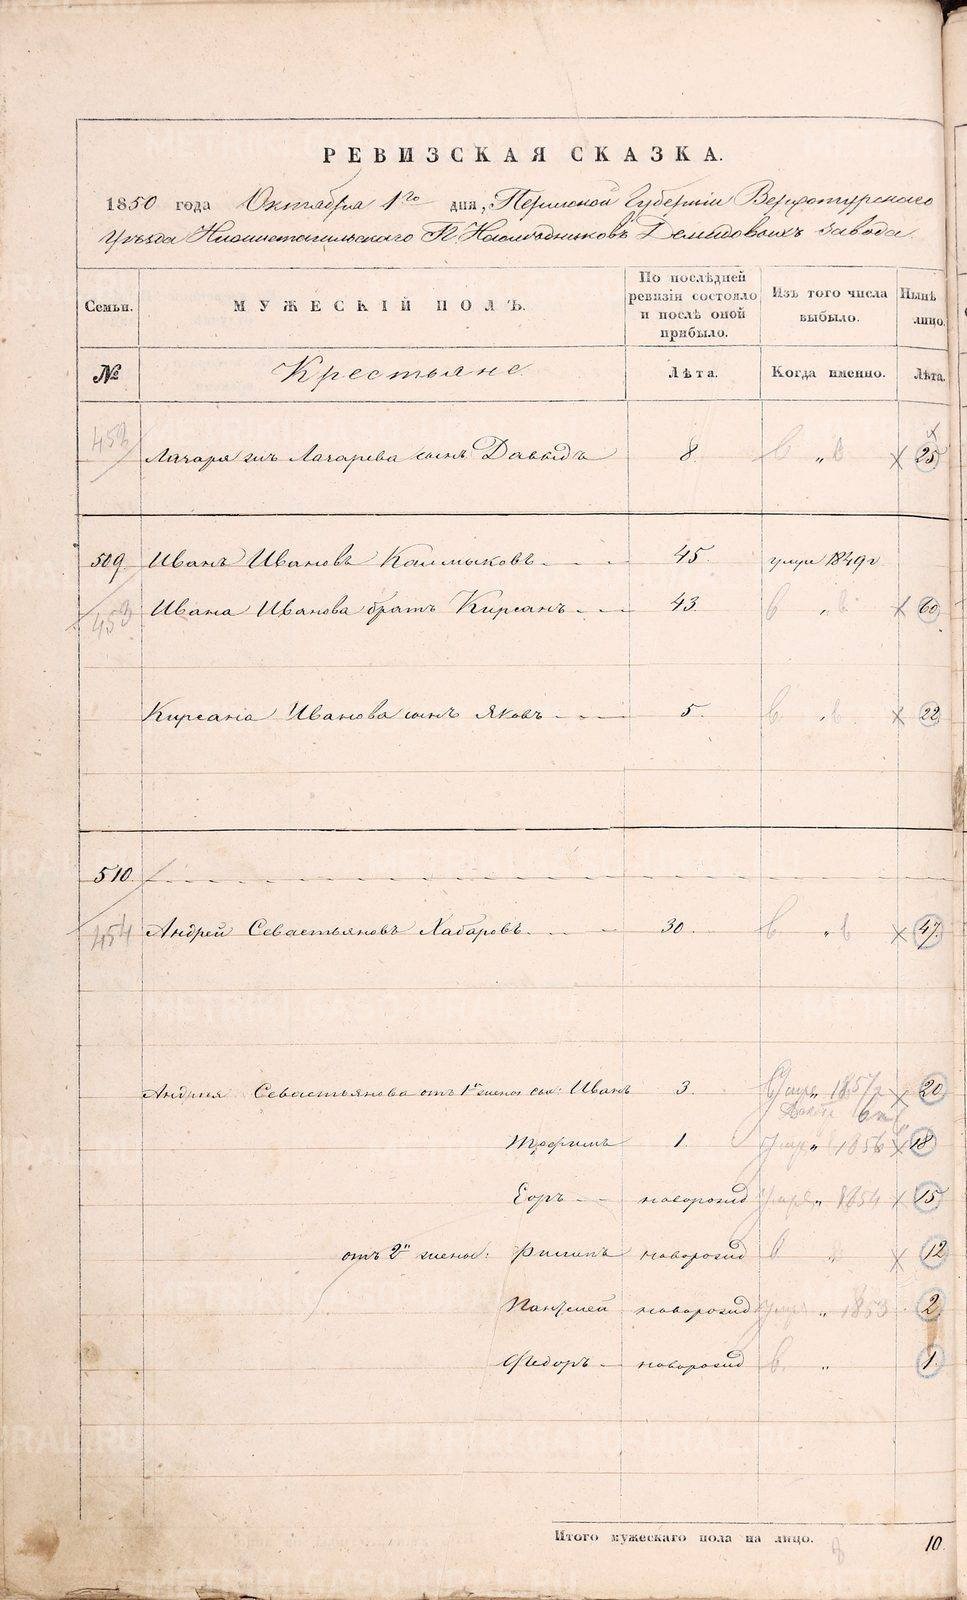 РЕВИЗСКАЯ СКАЗКА.
1850 года Октября 1го дня, Пермской Губерніи Верхотурскаго
Уѣзда Нижнетагильскаго Г. Наслѣдниковъ Демидовыхъ завода.
Семьи. МУЖЕСКІЙ ПОЛЪ. По послѣдней ревизіи состояло и послѣ оной прибыло. Изъ того числа выбыло. Нынѣ лицо.
№ Крестьяне. Лѣта. Когда именно. Лѣта.
452
Лазаря Лазарева сынъ Давыдъ 8. " 25
509. Иванъ Ивановъ Калмыковъ 45. умре 1849 г
453 Ивана Иванова братъ Кирсанъ 43. " 60
Кирсана Иванова сынъ Яковъ 5. " 22
510
454 Андрей Севастьяновъ Хабаровъ 30. " 47.
Андрея Севастьянова отъ 1й жены сын: Иванъ 3. умре " 1857 20
Трофимъ 1. умре " 1856 18
Егоръ новорожд умре " 1854 15
отъ 2й жены: Филипъ новорожд " 12
Пантелей новорожд умре " 1853 2
Ѳедоръ новорожд " 1.
Итого мужескаго пола на лицо. 8 10.
METRIKI.GASO-URAL.RU